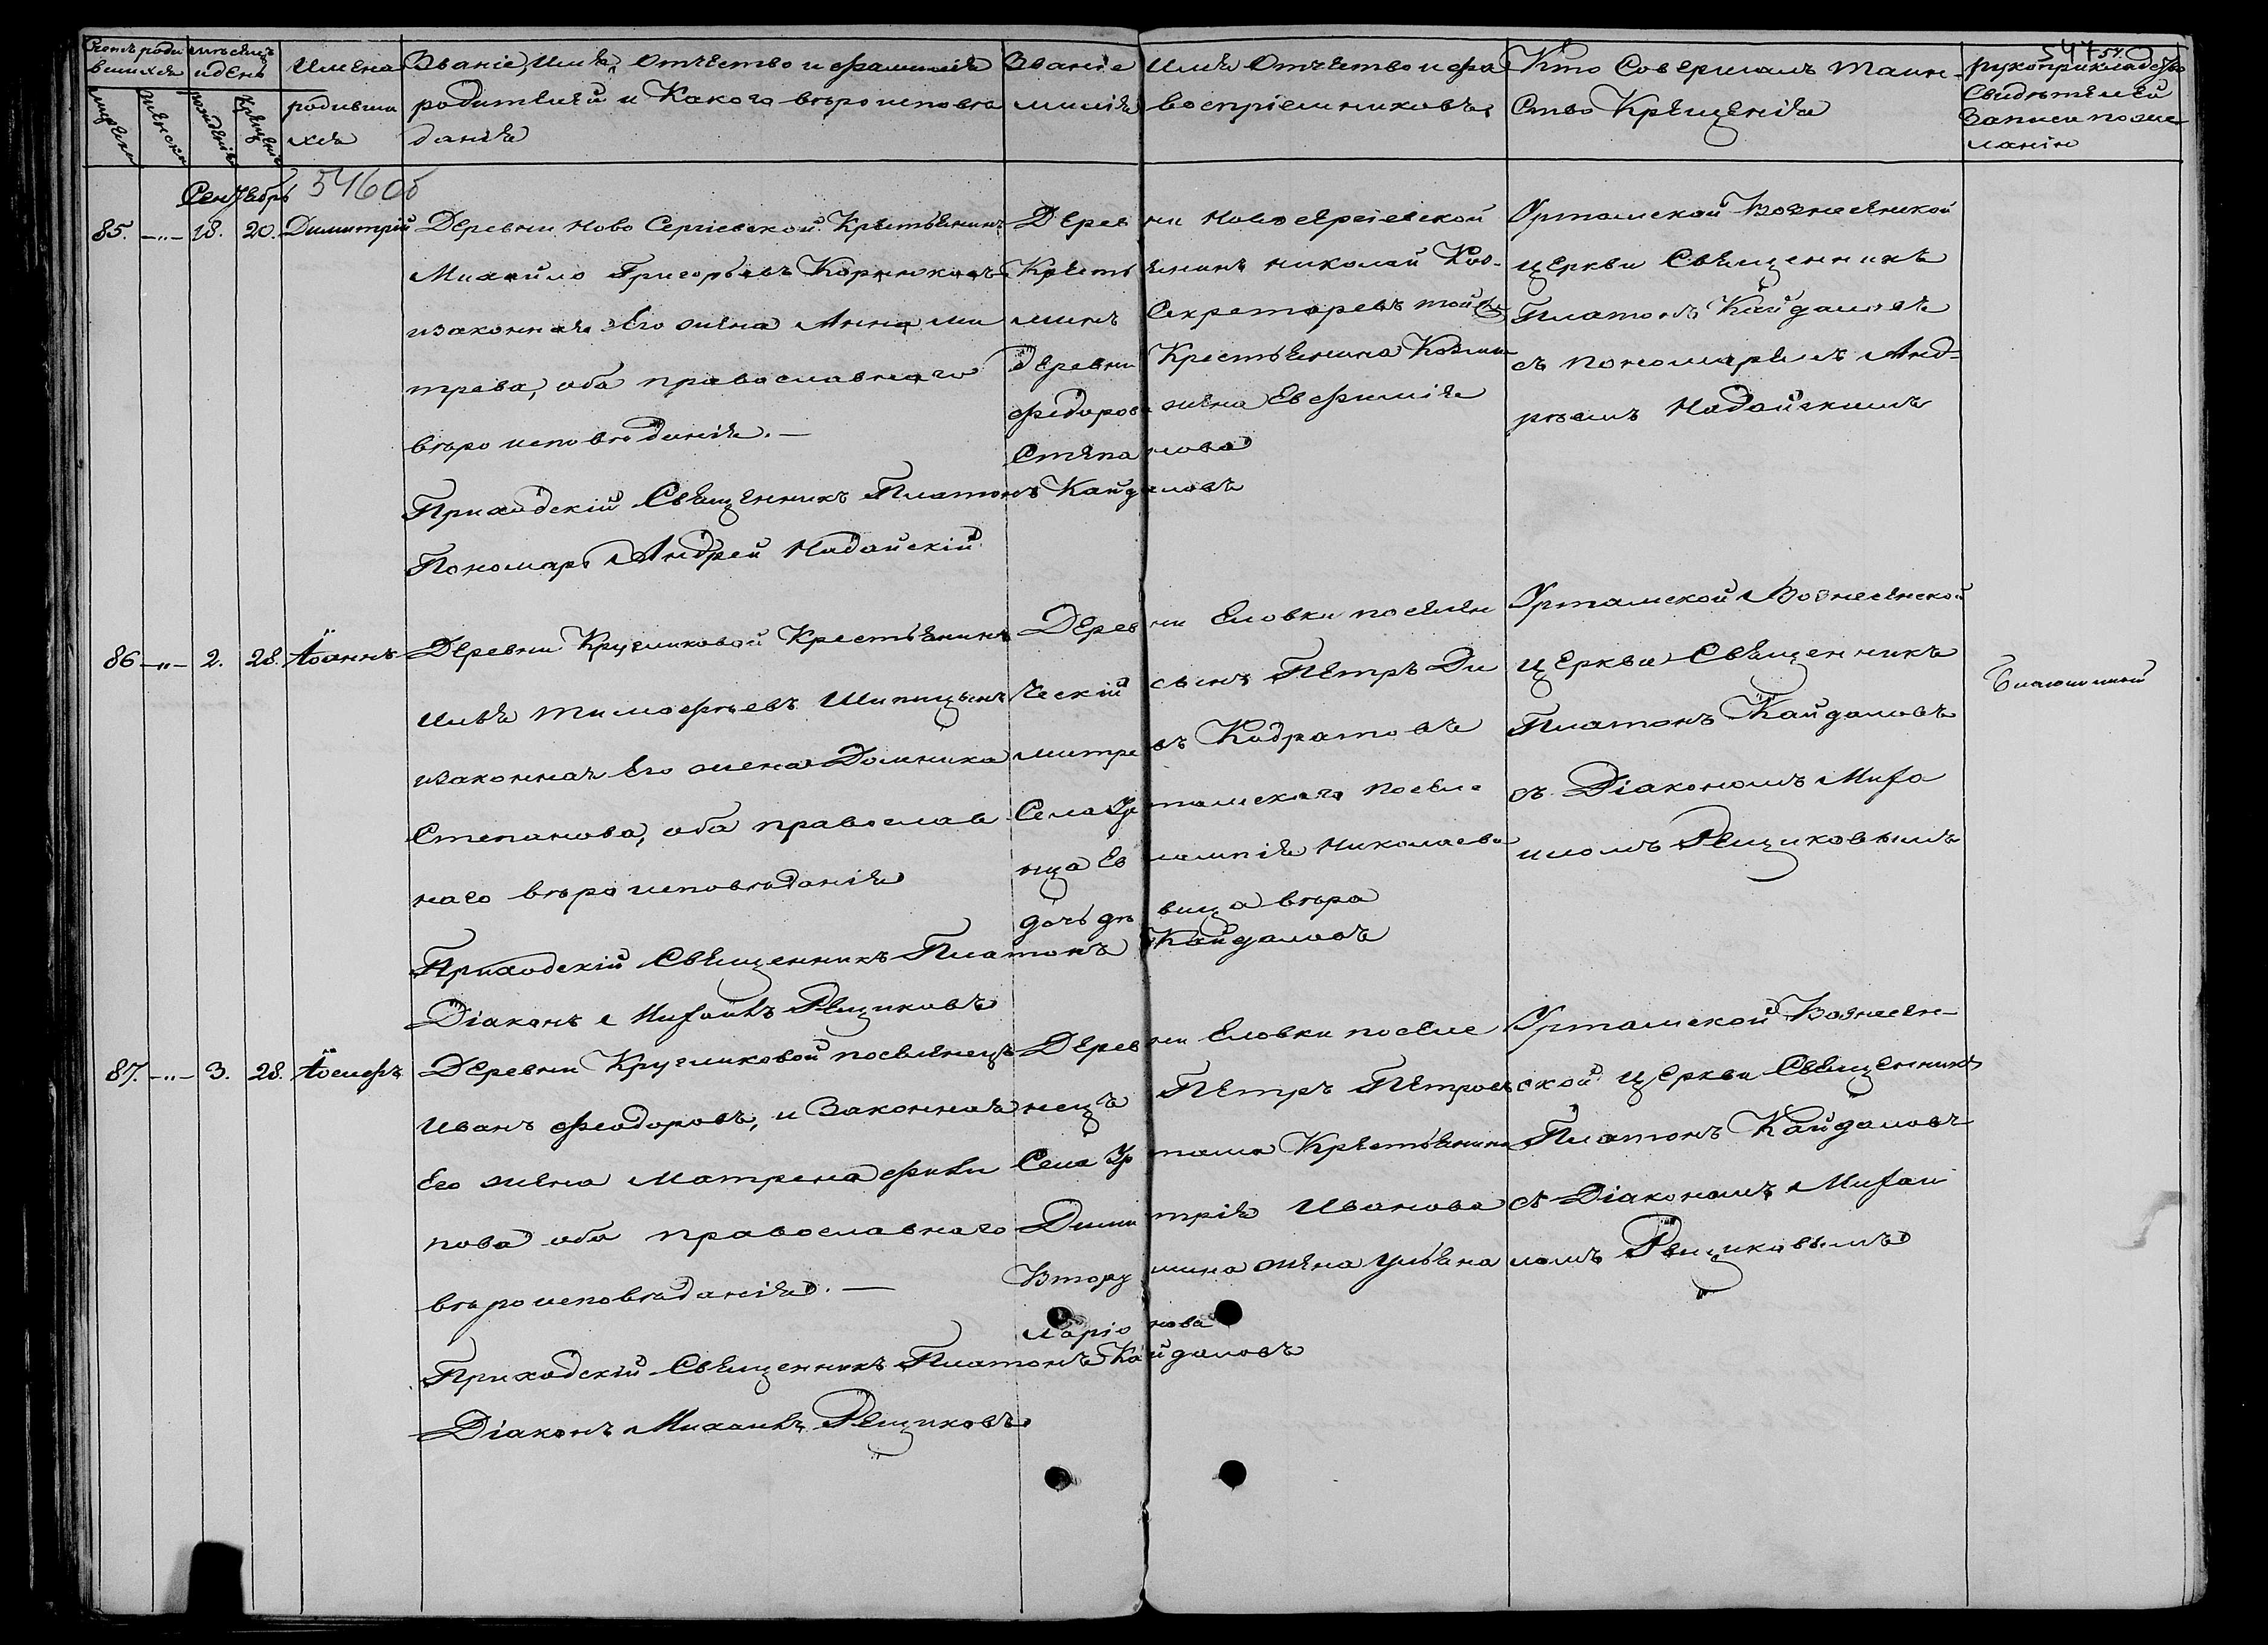 547
Счетъ роди
вшихся
мужеска
женска
мѣсяцъ
и день
рожденія
крещенія
Имена
родивши
хся
Званіе, Имя, Отчество и фамилія
родителей и Какого вѣроисповѣ
данія
Званіе Имя Отчество и фа
милія воспріемниковъ.
Кто Совершалъ Таин-
ство Крещенія
рукоприкладство
Свидѣтелей
Записи по же-
ланію
Сентябрь 546 об
85. —"— 18. 20. Димитрій
Деревни Ново Сергіевской Крестьянинъ
Михайло Григорьевъ
изаконная Его жена Анна Ми
трева, оба православнаго
вѣроисповѣданія. —
Деревни Новосергіевской
Крестьянинъ Николай
Секретаревъ той же
деревни Крестьянина Козмы
Федорова жена Евфимія
Степанова
Уртамской Вознесенской
церкви Священникъ
Платонъ Кайдаловъ
съ пономаремъ Анд-
реемъ Надайскимъ
Приходскій Священникъ Платонъ Кайдаловъ
Пономарь Андрей Надайскій
86 —"— 2. 28. Іоаннъ
Деревни Кругликовой Крестьянинъ
Илья Тимофѣевъ Шипицынъ
изаконная Его жена Домника
Степанова, оба православ
наго вѣроисповѣданія
Деревни Еловки поселен
ческій сынъ Петръ Ди
митревъ Кодратовъ
Села Уртамскаго поселе
нца Евлампія Николаева
дочь дѣвица вѣра
Уртамской Вознесенской
церкви Священникъ
Платонъ Кайдаловъ
съ Діакономъ Миха
иломъ Рещиковымъ
Приходскій Священникъ Платонъ Кайдаловъ
Діаконъ Михаилъ Рещиковъ
87. —"— 3. 28. Іосифъ
Деревни Кругликовой поселенецъ
Иванъ Феодоровъ, и Законная
Его жена Матрена Фили
пова оба православнаго
вѣроисповѣданія. —
Деревни Еловки поселе
нецъ Петръ Петровъ
Села Уртама Крестьянина
Димитрія Иванова
Вторушина жена Ульяна
Ларіонова
Уртамской Вознесен-
ской церкви Священникъ
Платонъ Кайдаловъ
съ Діакономъ Михаи
ломъ Рещиковымъ
Приходскій Священникъ Платонъ Кайдаловъ
Діаконъ Михаилъ Рещиковъ